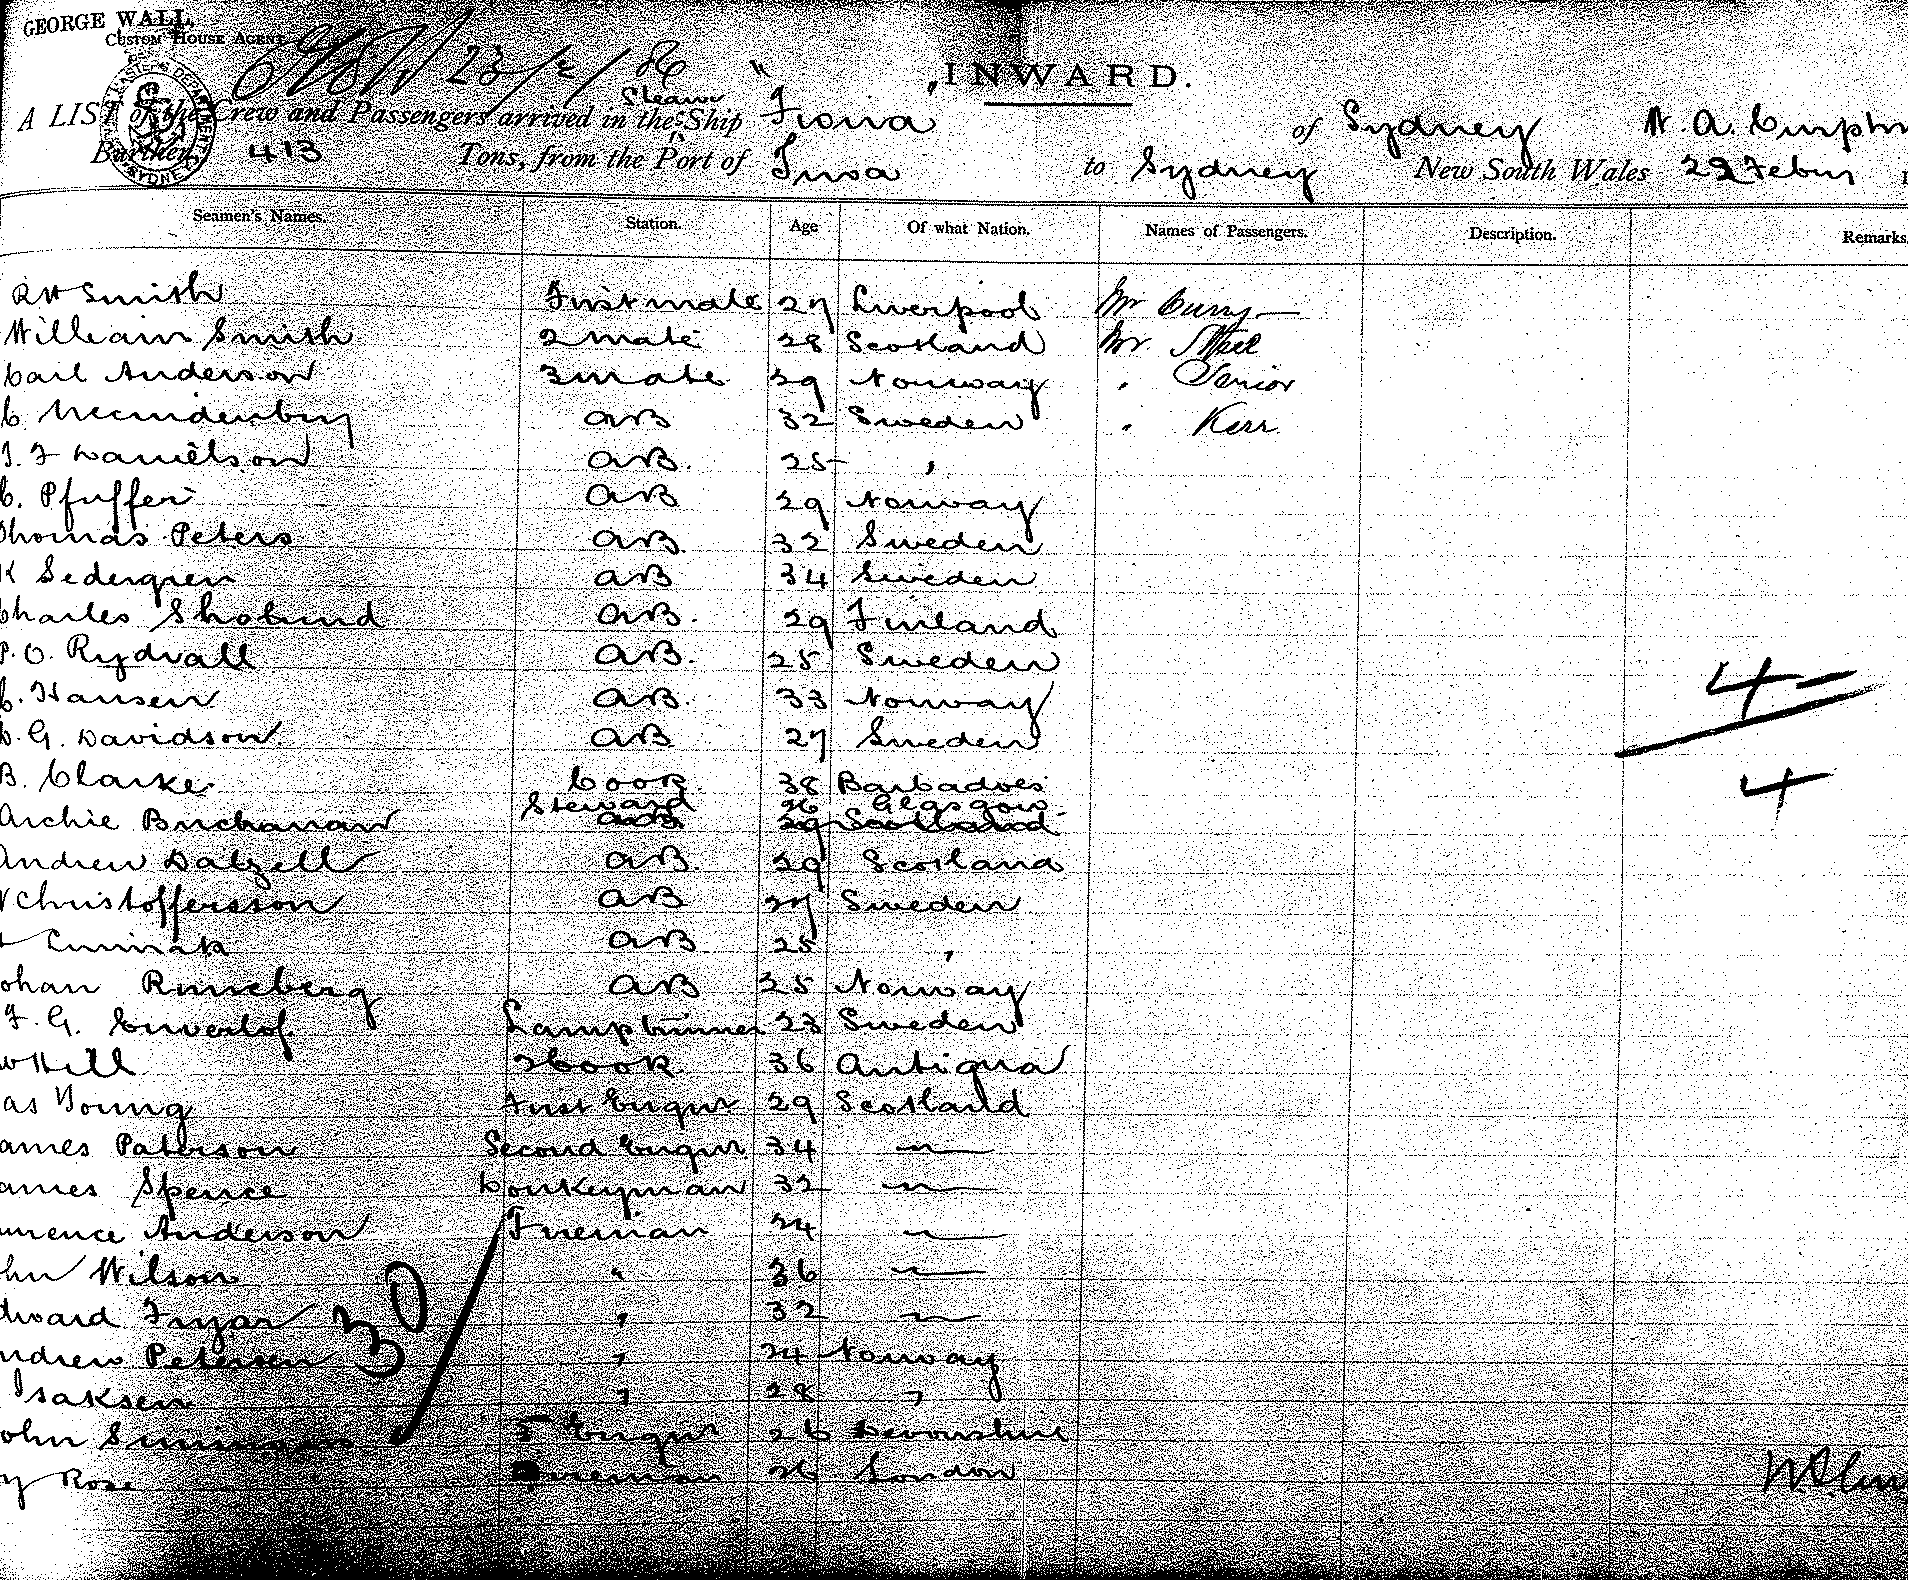 GEORGE WALL,
CUSTOM HOUSE AGENT
INWARD.
A LIST of the Crew and Passengers arrived in the Steam Ship "Fiona" of Sydney W. A.
Burthen, 413 Tons, from the Port of to Sydney New South Wales 22 Feby
Seamen's Names. Station. Age Of what Nation. Names of Passengers. Description. Remarks
RH Smith First mate 27 Liverpool Mr Curry
William Smith 2 mate 28 Scotland Mr
Carl Anderson 3 mate 29 Norway " Senior
C AB 32 Sweden " Kerr
J. F Danielson AB. 25 "
C. Pfuffer AB 29 Norway
Thomas Peters AB. 32 Sweden
K Sedergren AB 34 Sweden
Charles Sholund AB. 29 Finland
P. O. Rydvall AB. 25 Sweden
C. Hansen AB. 33 Norway
G. Davidson AB 27 Sweden
4
4
B. Clarke Cook 38 Barbadoes
Archie Buchanan Steward 26 Glasgow
Andrew Dalzell AB. 29 Scotland
Christoffersson AB 27 Sweden
AB 25 "
ohan Runeberg AB 25 Norway
F. G. Lamptrimmer 23 Sweden
W Hill 2 Cook 36 Antigua
as Young First Enginr 29 Scotland
ames Paterson Second Enginr 34 "
ames Spence Donkeyman 32 "
urence Anderson Fireman 24 "
hn Wilson " 36 "
dward Fryar " 32 "
30
ndrew Petersen " 24 Norway
Isaksen " 28 "
ohn Simmons 3 Enginr 26 Devonshire
y Rose Fireman 26 London